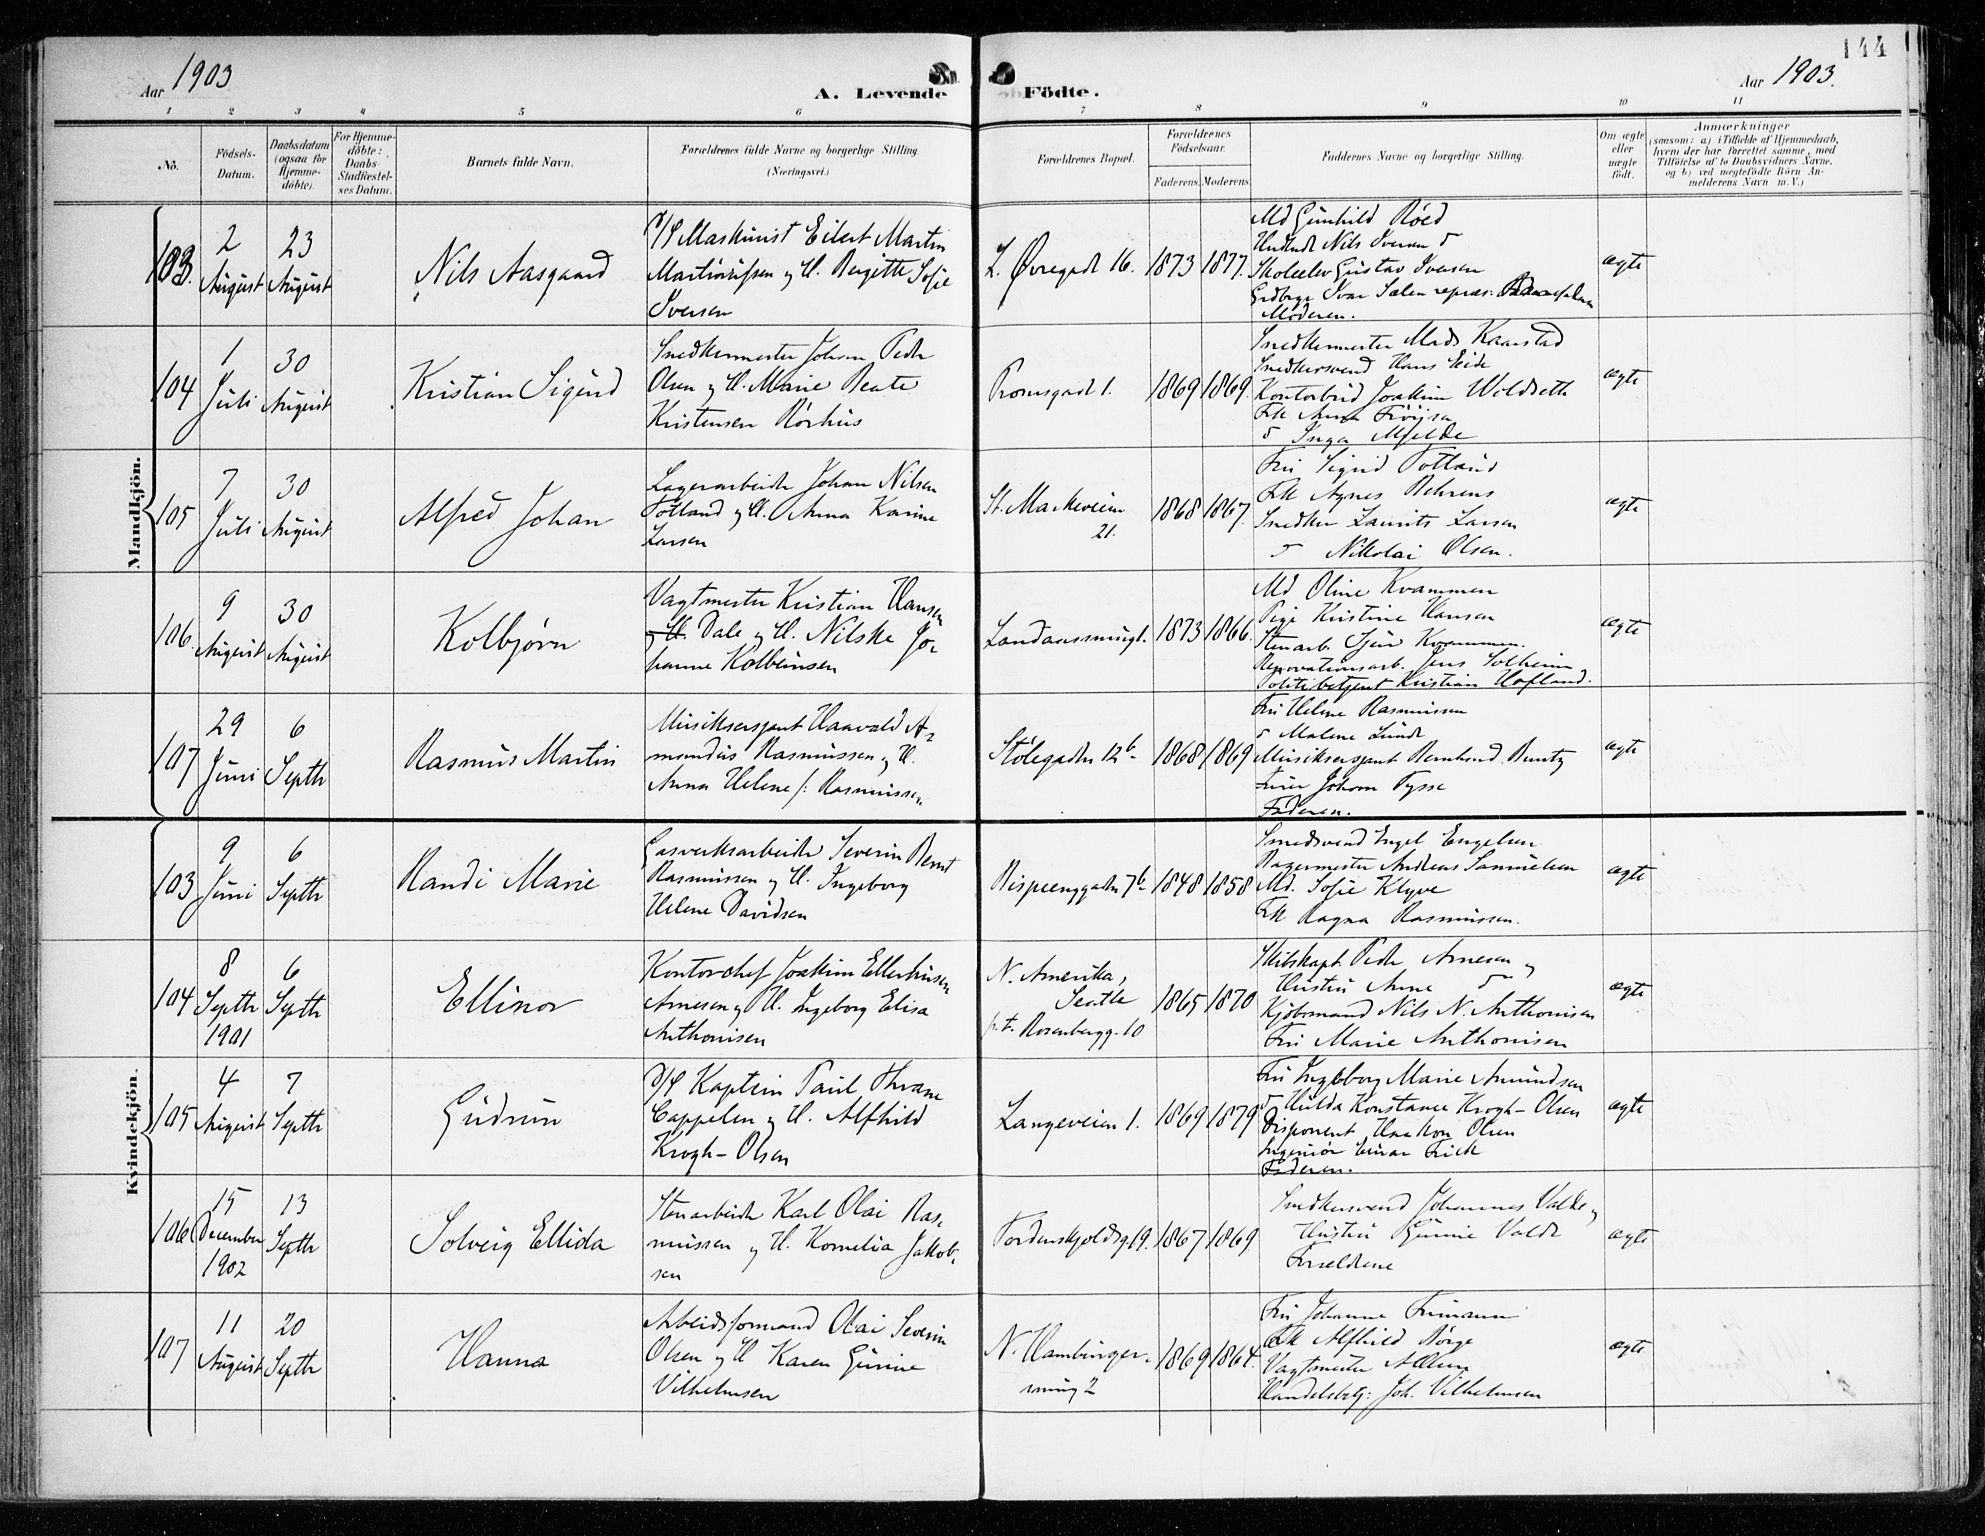 144
Aar 1903
A. Levende Födte.
Aar 1903.
1 2 3 4 5 6 7 8 9 10 11
No.
Födsels-
Datum.
Daabsdatum
(ogsaa for
Hjemme-
döbte).
For Hjemme-
döbte:
Daabs-
Stadfæstel-
ses Datum.
Barnets fulde Navn.
Forældrenes fulde Navne og borgerlige Stilling
(Næringsvei.)
Forældrenes Bopæl.
Forældrenes
Födselsaar.
Faderens. Moderens.
Faddernes Navne og borgerlige Stilling.
Om ægte
eller
uægte
födt.
Anmærkninger
(saasom: a) i Tilfælde af Hjemmedaab,
hvem der har forrettet samme, med
Tilföielse af to Daabsvidners Navne.
og b) ved uægtefödte Börn An-
melderens Navn m. V.)
Mandkjön.
103.
2
August
23
August
Nils Aasgaard
Maskinist Eilert Martin
Martinussen og H. Bergitte Sofie
Iversen
L. Øvregade 16.
1873
1877.
Md Gunhild Røed
Nils Iversen
Skoleelev Gustav Iversen
Ivar Sælen repræs.
Moderen.
ægte
104
1
Juli
30
August
Kristian Sigurd
Snedkermester Johan Peder
Olsen og H. Marie Beate
Kristensen Rørhus
Promsgade 1.
1869
1869.
Snedkermester Mads Kaarstad
Snedkersvend Hans Eide
Kontorbud Joakim Woldseth
Frk Anna
Inga Mjelde
ægte
105
7
Juli
30
August
Alfred Johan
Lagerarbeider Johan Nilsen
Totland og H. Anna Karine
Larsen
St. Markeveien
21.
1868
1867.
Fru Sigrid Totland
Frk Agnes Behrens
Snedker Laurits Larsen
Nikolai Olsen.
ægte
106.
9
August
30
August
Kolbjørn
Vagtmester Kristian Hansen
og H. Dale og H. Nilske Jo-
hanne Kolbeinsen
Landaassmug 1.
1873
1866.
Md Oline Kvammen
Pige Kristine Hansen
Stenarb. Sjur Kvammen.
Renovationsarb. Jens Solheim
Politibetjent Kristian Hofland.
ægte
107
29
Juni
6
Septbr
Rasmus Martin
Musiksersjant Haavald A-
mandus Rasmussen og H.
Anna Helene f. Rasmussen
Stølegaden 12b
1868
1869
Fru Helene Rasmussen
Malene Lunde
Musiksersjant Bernhard Buntz
Furer Johan Tysse
Faderen.
ægte
Kvindekjön.
103
9
Juni
6
Septbr
Randi Marie
Gasverksarbeider Severin Bernt
Rasmussen og H. Ingeborg
Helene Davidsen
Bispenggaden 7b
1848
1858
Smedsvend Engel Engelsen
Bagermester Andreas Samuelsen
Md. Sofie Klyve
Frk Ragna Rasmussen.
ægte
104
8
Septbr
1901
6
Septbr
Ellinor
Kontorchef Joakim Ellerhusen
Arnesen og H. Ingeborg Elisa
Anthonisen
N. Amerika,
Seatle
p.t. Rosenbergg. 10
1865
1870
Skibskapt. Peder Arnesen og
Hustru Anne
Kjøbmand Nils N. Anthonisen
Fru Marie Anthonisen
ægte
105
4
August
7
Septbr
Gudrun
Kaptein Paul Thrane
Cappelen og H. Alfhild
Krogh-Olsen
Langeveien 1.
1869
1879
Fru Ingeborg Marie Amundsen
Hulda Konstance Krogh-Olsen
Disponent Haakon Olsen
Ingeniør Einar Frick
Faderen.
ægte
106
15
December
1902
13
Septbr
Solveig Ellida
Stenarbeider Karl Olai Ras-
mussen og H. Kornelia Jakob-
sen
Tordenskjoldsg. 19.
1867
1869
Snedkersvend Johannes Valde og
Hustru Gunnie Valde
Forældrene
ægte
107
11
August
20
Septbr
Hanna
Arbeidsformand Olai Severin
Olsen og H Karen Gurine
Vilhelmsen
N. Hamburger-
smug 2
1869
1864.
Fru Johanne Frimann
Frk Alfhild Børge
Vagtmester A Olsen
Handelsbetj: Joh. Vilhelmsen
ægte